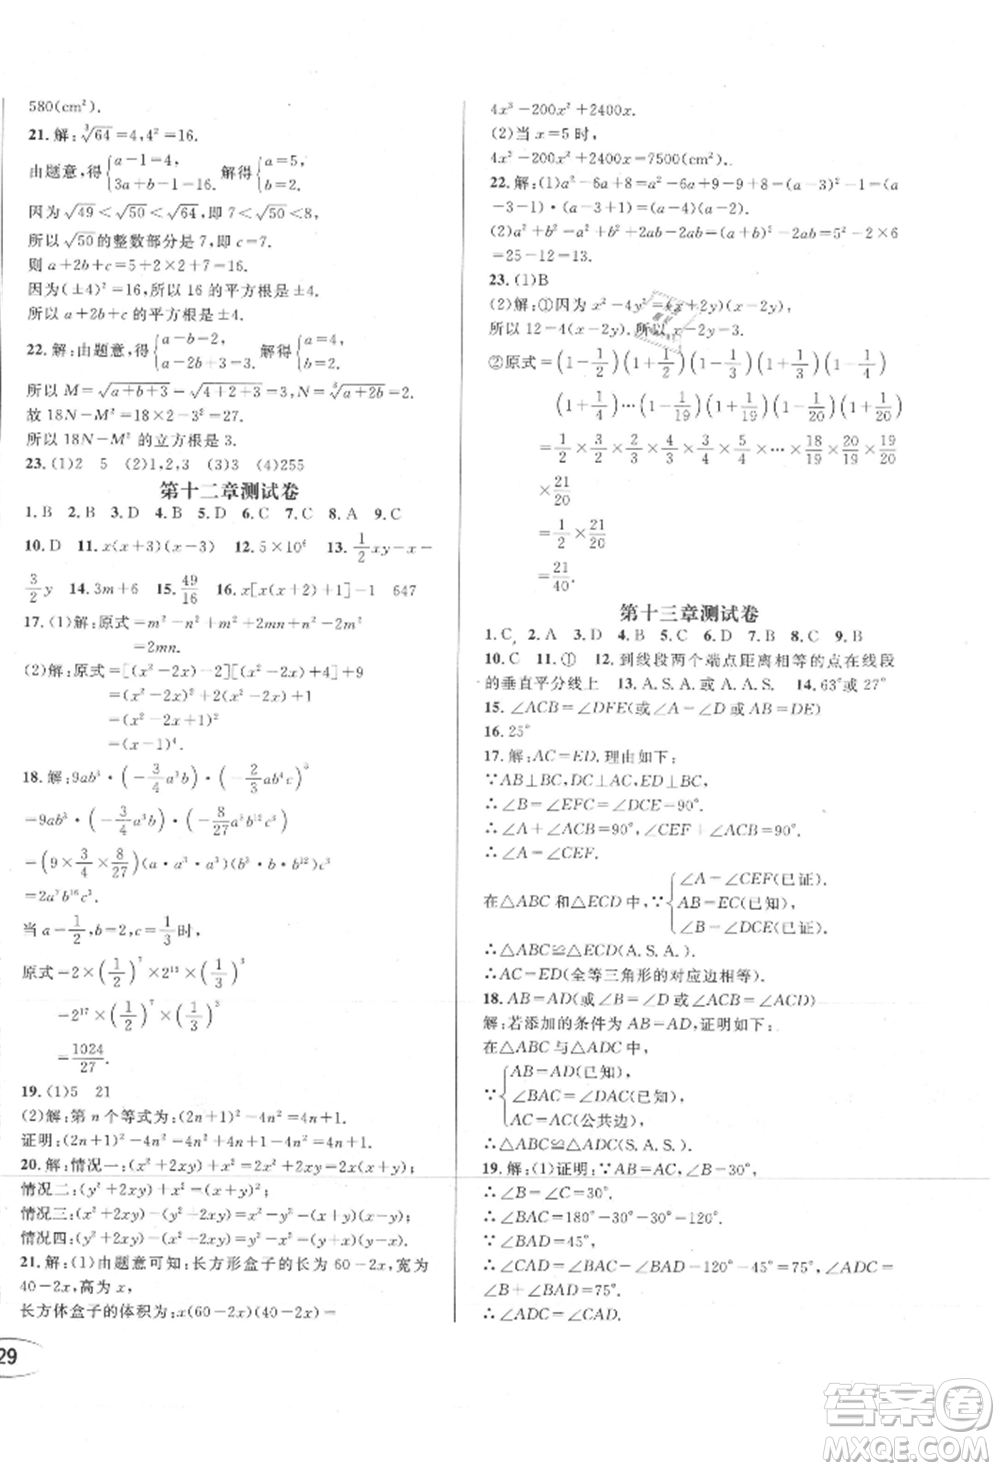 580(cm²).
21. 解:∛64=4,4²=16.
由题意,得{a-1=4, 3a+b-1=16. 解得{a=5, b=2.
因为√49<√50<√64,即7<√50<8,
所以√50的整数部分是7,即c=7.
则a+2b+c=5+2×2+7=16.
因为(±4)²=16,所以16的平方根是±4,
所以a+2b+c的平方根是±4.
22. 解:由题意,得{a-b=2, a-2b+3=2. 解得{a=3, b=1.
所以M=√(a+b+3)=√(4+2+3)=3,N=∛(a+2b)=2.
故18N-M²=18×2-9=27.
所以18N-M²的立方根是3.
23. (1)2 5 (2)1,2,3 (3)3 (4)255
第十二章测试卷
1. B 2. B 3. D 4. B 5. D 6. C 7. C 8. A 9. C
10. D 11. x(x+3)(x-3) 12. 5×10⁶ 13. 1/2xy-x-
3/2y 14. 3m+6 15. 49/16 16. x[x(x+2)+1]-1 647
17. (1)解:原式=m²-n²+n²-m²+2mn
=2mn.
(2)解:原式=[(x²-2x)-2](x²-2x)+1
=(x²-2x)²+2(x²-2x)+1
=(x²-2x+1)²
=(x-1)⁴.
18. 解:9ab³·(-3/4a³b)·(-2/3ab⁴c)³
=9ab³·(-3/4a³b)·(-8/27a³b¹²c³)
=(9×3/4×8/27)(a·a³·a³)(b³·b·b¹²)c³
=2a⁷b¹⁶c³.
当a=1/2,b=2,c=1/3时,
原式=2×(1/2)⁷×2¹⁵×(1/3)³
=2¹⁷×(1/2)⁷×(1/3)³
=1024/27.
19. (1)5 21
(2)解:第n个等式为:(2n+1)²-4n²=4n+1.
证明:(2n+1)²-4n²=4n²+4n+1-4n²=4n+1.
20. 解:情况一:(x²+2xy)+x²=2x²+2xy=2x(x+y).
情况二:(y²+2xy)+x²=(x+y)².
情况三:(x²+2xy)-(y²+2xy)=x²-y²=(x+y)(x-y).
情况四:(y²+2xy)-(x²+2xy)=y²-x²=(y+x)(y-x).
21. 解:(1)由题意可知:长方形盒子的长为60-2x,宽为
40-2x,高为x,
长方体盒子的体积为:x(60-2x)(40-2x)=
29
4x³-200x²+2400x.
(2)当x=5时,
4x³-200x²+2400x=7500(cm²).
22. 解:(1)a²-6a+8=a²-6a+9-9+8=(a-3)²-1=(a
-3-1)·(a-3+1)=(a-4)(a-2).
(2)a²+b²=a²+b²+2ab-2ab=(a+b)²-2ab=5²-2×6
=25-12=13.
23. (1)B
(2)解:①因为x²-4y²=(x+2y)(x-2y),
所以12=4(x-2y). 所以x-2y=3.
②原式=(1-1/2)(1+1/2)(1-1/3)(1+1/3)(1-1/4)
(1+1/4)…(1-1/19)(1+1/19)(1-1/20)(1+1/20)
=1/2×3/2×2/3×4/3×3/4×5/4×…×18/19×20/19×19/20
×21/20
=1/2×21/20
=21/40.
第十三章测试卷
1. C 2. A 3. D 4. B 5. C 6. D 7. B 8. C 9. B
10. C 11. ① 12. 到线段两个端点距离相等的点在线段
的垂直平分线上 13. A.S.A.或A.A.S. 14. 63°或27°
15. ∠ACB=∠DFE(或∠A=∠D或AB=DE)
16. 25°
17. 解:AC=ED.理由如下:
∵AB⊥BC,DC⊥AC,EF⊥AC,
∴∠B=∠EFC=∠DCE=90°.
∴∠A+∠ACB=90°,∠CEF+∠ACB=90°.
∴∠A=∠CEF.
在△ABC和△ECD中,∵{∠A=∠CEF(已证). AB=EC(已知), ∠B=∠DCE(已证).
∴△ABC≌△ECD(A.S.A.).
∴AC=ED(全等三角形的对应边相等).
18. AB=AD(或∠B=∠D或∠ACB=∠ACD)
解:若添加的条件为AB=AD,证明如下:
在△ABC与△ADC中,
∵{AB=AD(已知), ∠BAC=∠DAC(已知), AC=AC(公共边),
∴△ABC≌△ADC(S.A.S.).
19. 解:(1)证明:∵AB=AC,∠B=30°,
∴∠B=∠C=30°.
∴∠BAC=180°-30°-30°=120°.
∵∠BAD=45°,
∴∠CAD=∠BAC-∠BAD=120°-45°=75°,
∠ADC=∠B+∠BAD=75°.
∴∠ADC=∠CAD.
答案卷
MXQE.COM